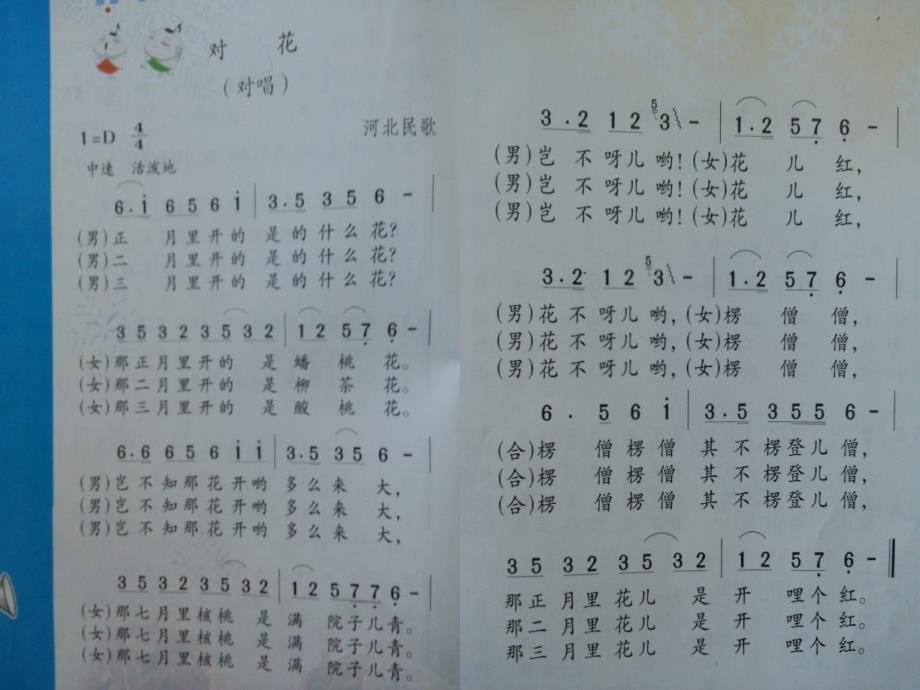 对 花
(对唱)
1=D 4/4
河北民歌
中速 活泼地
6.i 6 5 6 i | 3.5 3 5 6 - |
(男)正 月里开的 是的什么花?
(男)二 月里开的 是的什么花?
(男)三 月里开的 是的什么花?
3 5 3 2 3 5 3 2 | 1 2 5 7 6 - |
(女)那正月里开的 是 蟠 桃 花。
(女)那二月里开的 是 柳 茶 花。
(女)那三月里开的 是 酸 桃 花。
6.6 6 5 6 i i | 3.5 3 5 6 - |
(男)岂不知那花开哟 多么来 大,
(男)岂不知那花开哟 多么来 大,
(男)岂不知那花开哟 多么来 大,
3 5 3 2 3 5 3 2 | 1 2 5 7 7 6 - |
(女)那七月里核桃 是 满 院子儿青。
(女)那七月里核桃 是 满 院子儿青。
(女)那七月里核桃 是 满 院子儿青。
3.2 1 2 5 3 | 1.2 5 7 6 - |
(男)岂 不呀儿哟!(女)花 儿 红,
(男)岂 不呀儿哟!(女)花 儿 红,
(男)岂 不呀儿哟!(女)花 儿 红,
3.2 1 2 5 3 | 1.2 5 7 6 - |
(男)花不呀儿 哟,(女)楞 僧 僧,
(男)花不呀儿 哟,(女)楞 僧 僧,
(男)花不呀儿 哟,(女)楞 僧 僧,
6 . 5 6 i | 3.5 3 5 5 6 - |
(合)楞 僧楞僧 其不楞登儿僧
(合)楞 僧楞僧 其不楞登儿僧
(合)楞 僧楞僧 其不楞登儿僧
3 5 3 2 3 5 3 2 | 1 2 5 7 6 - ‖
那正月里花儿 是 开 哩个红。
那二月里花儿 是 开 哩个红。
那三月里花儿 是 开 哩个红。